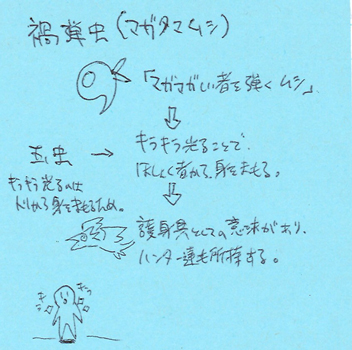 禍弾虫(マガタマムシ)
「マガマガしい者を弾くムシ」
玉虫 → キラキラ光ることで、
ほしょく者から身をまもる。
キラキラ光るのは
トリから身をまもるため。
護身具としての意味があり、
ハンター達も所持する。
キラ
キラ